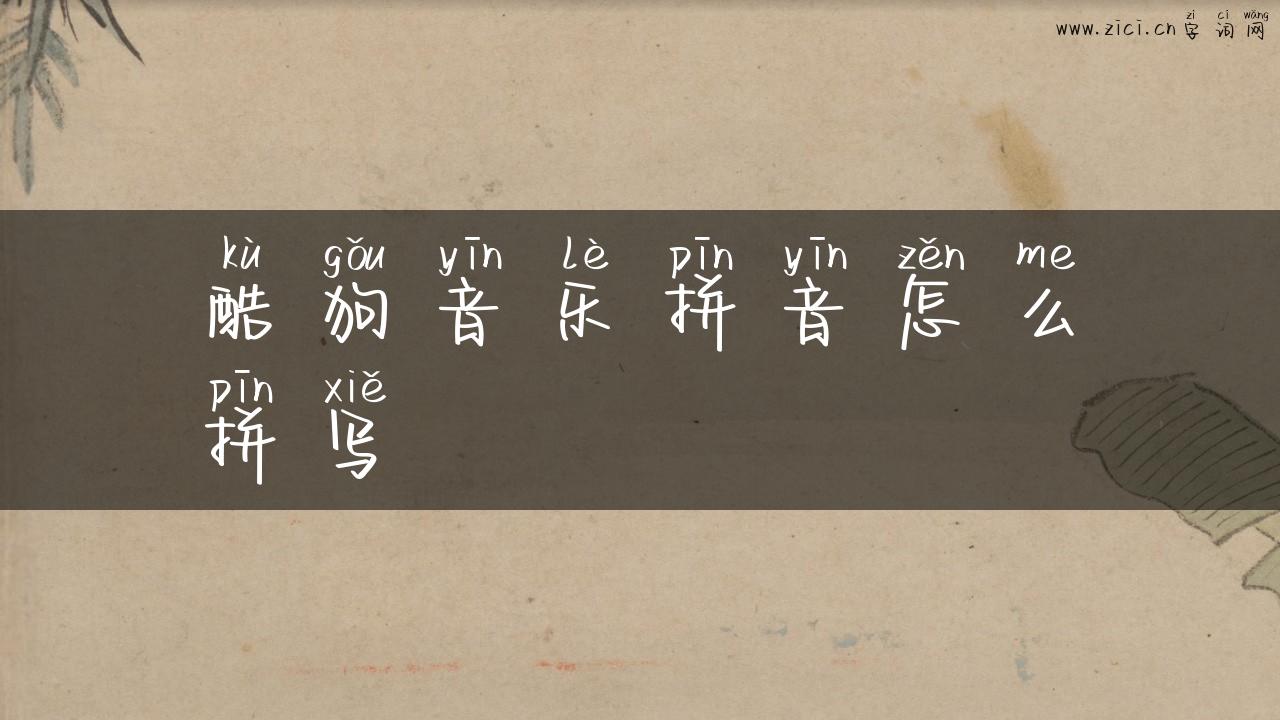 zì cí wǎng
www.zici.cn 字词网
kù gǒu yīn lè pīn yīn zěn me
酷狗音乐拼音怎么
pīn xiě
拼写